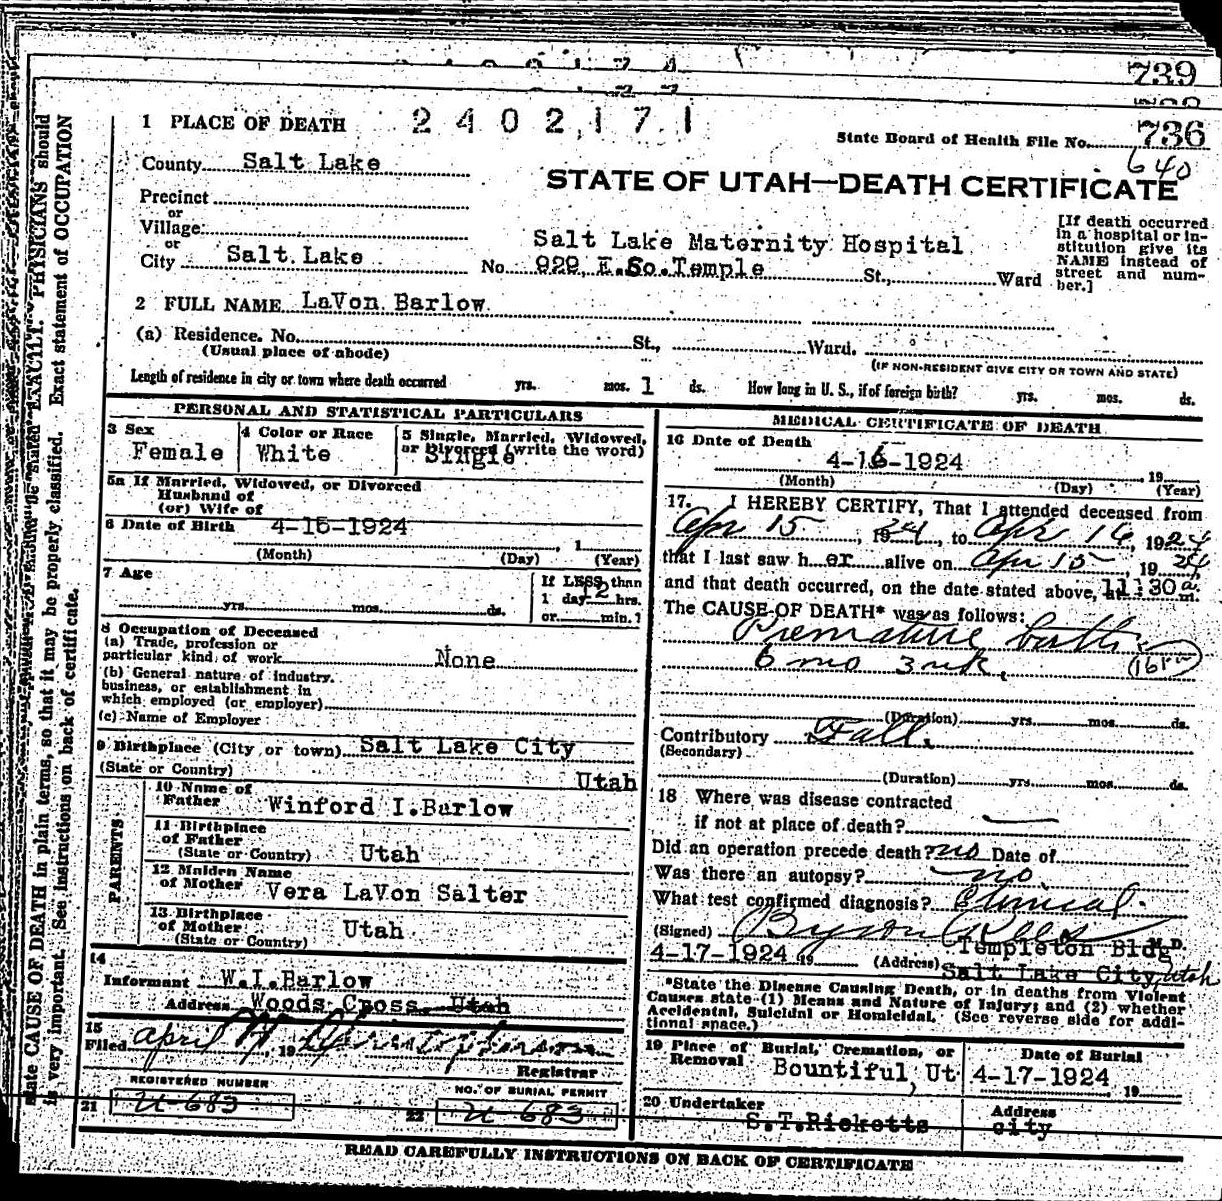 739
736
1 PLACE OF DEATH 2402171
State Board of Health File No. 640
County Salt Lake
STATE OF UTAH—DEATH CERTIFICATE
Precinct
or
Village
or
City Salt Lake
Salt Lake Maternity Hospital
No. 929 E.So.Temple St., Ward
[If death occurred
in a hospital or in-
stitution give its
NAME instead of
street and num-
ber.]
2 FULL NAME LaVon Barlow
(a) Residence. No. St., Ward.
(Usual place of abode)
(IF NON-RESIDENT GIVE CITY OR TOWN AND STATE)
Length of residence in city or town where death occurred yrs. mos. 1 ds. How long in U. S., if of foreign birth? yrs. mos. ds.
PERSONAL AND STATISTICAL PARTICULARS
3 Sex
Female
4 Color or Race
White
5 Single, Married, Widowed,
or Divorced (write the word)
Single
5a If Married, Widowed, or Divorced
Husband of
(or) Wife of
6 Date of Birth 4-15-1924
(Month) (Day) (Year)
7 Age
yrs. mos. ds.
If LESS than
1 day 12 hrs.
or min.?
8 Occupation of Deceased
(a) Trade, profession or
particular kind of work None
(b) General nature of industry,
business, or establishment in
which employed (or employer)
(c) Name of Employer
9 Birthplace (City or town) Salt Lake City
(State or Country) Utah
PARENTS
10 Name of
Father Winford I.Barlow
11 Birthplace
of Father
(State or Country) Utah
12 Maiden Name
of Mother Vera LaVon Salter
13 Birthplace
of Mother
(State or Country) Utah
14
Informant W.I.Barlow
Address Woods Cross, Utah
15
Filed April 19 Registrar
REGISTERED NUMBER
21 U-683
NO. OF BURIAL PERMIT
22 U 683
MEDICAL CERTIFICATE OF DEATH
16 Date of Death
4-16-1924 19
(Month) (Day) (Year)
17. I HEREBY CERTIFY, That I attended deceased from
Apr 15, 1924, to Apr 16, 1924
that I last saw her alive on Apr 15, 1924,
and that death occurred, on the date stated above, at 11:30 a m.
The CAUSE OF DEATH* was as follows:
Premature birth
6 mo 3 wk.
(Duration) yrs. mos. ds.
Contributory Fall.
(Secondary)
(Duration) yrs. mos. ds.
18 Where was disease contracted
if not at place of death? —
Did an operation precede death? no Date of
Was there an autopsy? no.
What test confirmed diagnosis? Clinical.
(Signed) Byron Rees M.D.
4-17-1924 19 (Address) Templeton Bldg
Salt Lake City, Utah
*State the Disease Causing Death, or in deaths from Violent
Causes state (1) Means and Nature of Injury; and (2) whether
Accidental, Suicidal or Homicidal. (See reverse side for addi-
tional space.)
19 Place of Burial, Cremation, or
Removal Bountiful, Ut
Date of Burial
4-17-1924 19
20 Undertaker
S.T.Ricketts
Address
city
READ CAREFULLY INSTRUCTIONS ON BACK OF CERTIFICATE
EXACTLY. PHYSICIANS should
state CAUSE OF DEATH in plain terms, so that it may be properly classified. Exact statement of OCCUPATION
is very important. See instructions on back of certificate.